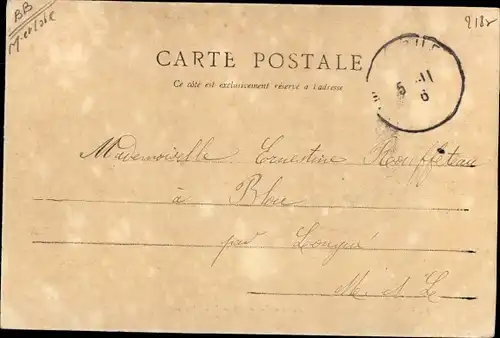 BB
2182
CARTE POSTALE
Ce côté est exclusivement réservé à l'adresse
5 -11
6
Mademoiselle Ernestine Rouffeteau
à Blou
par Longué
M. & L.